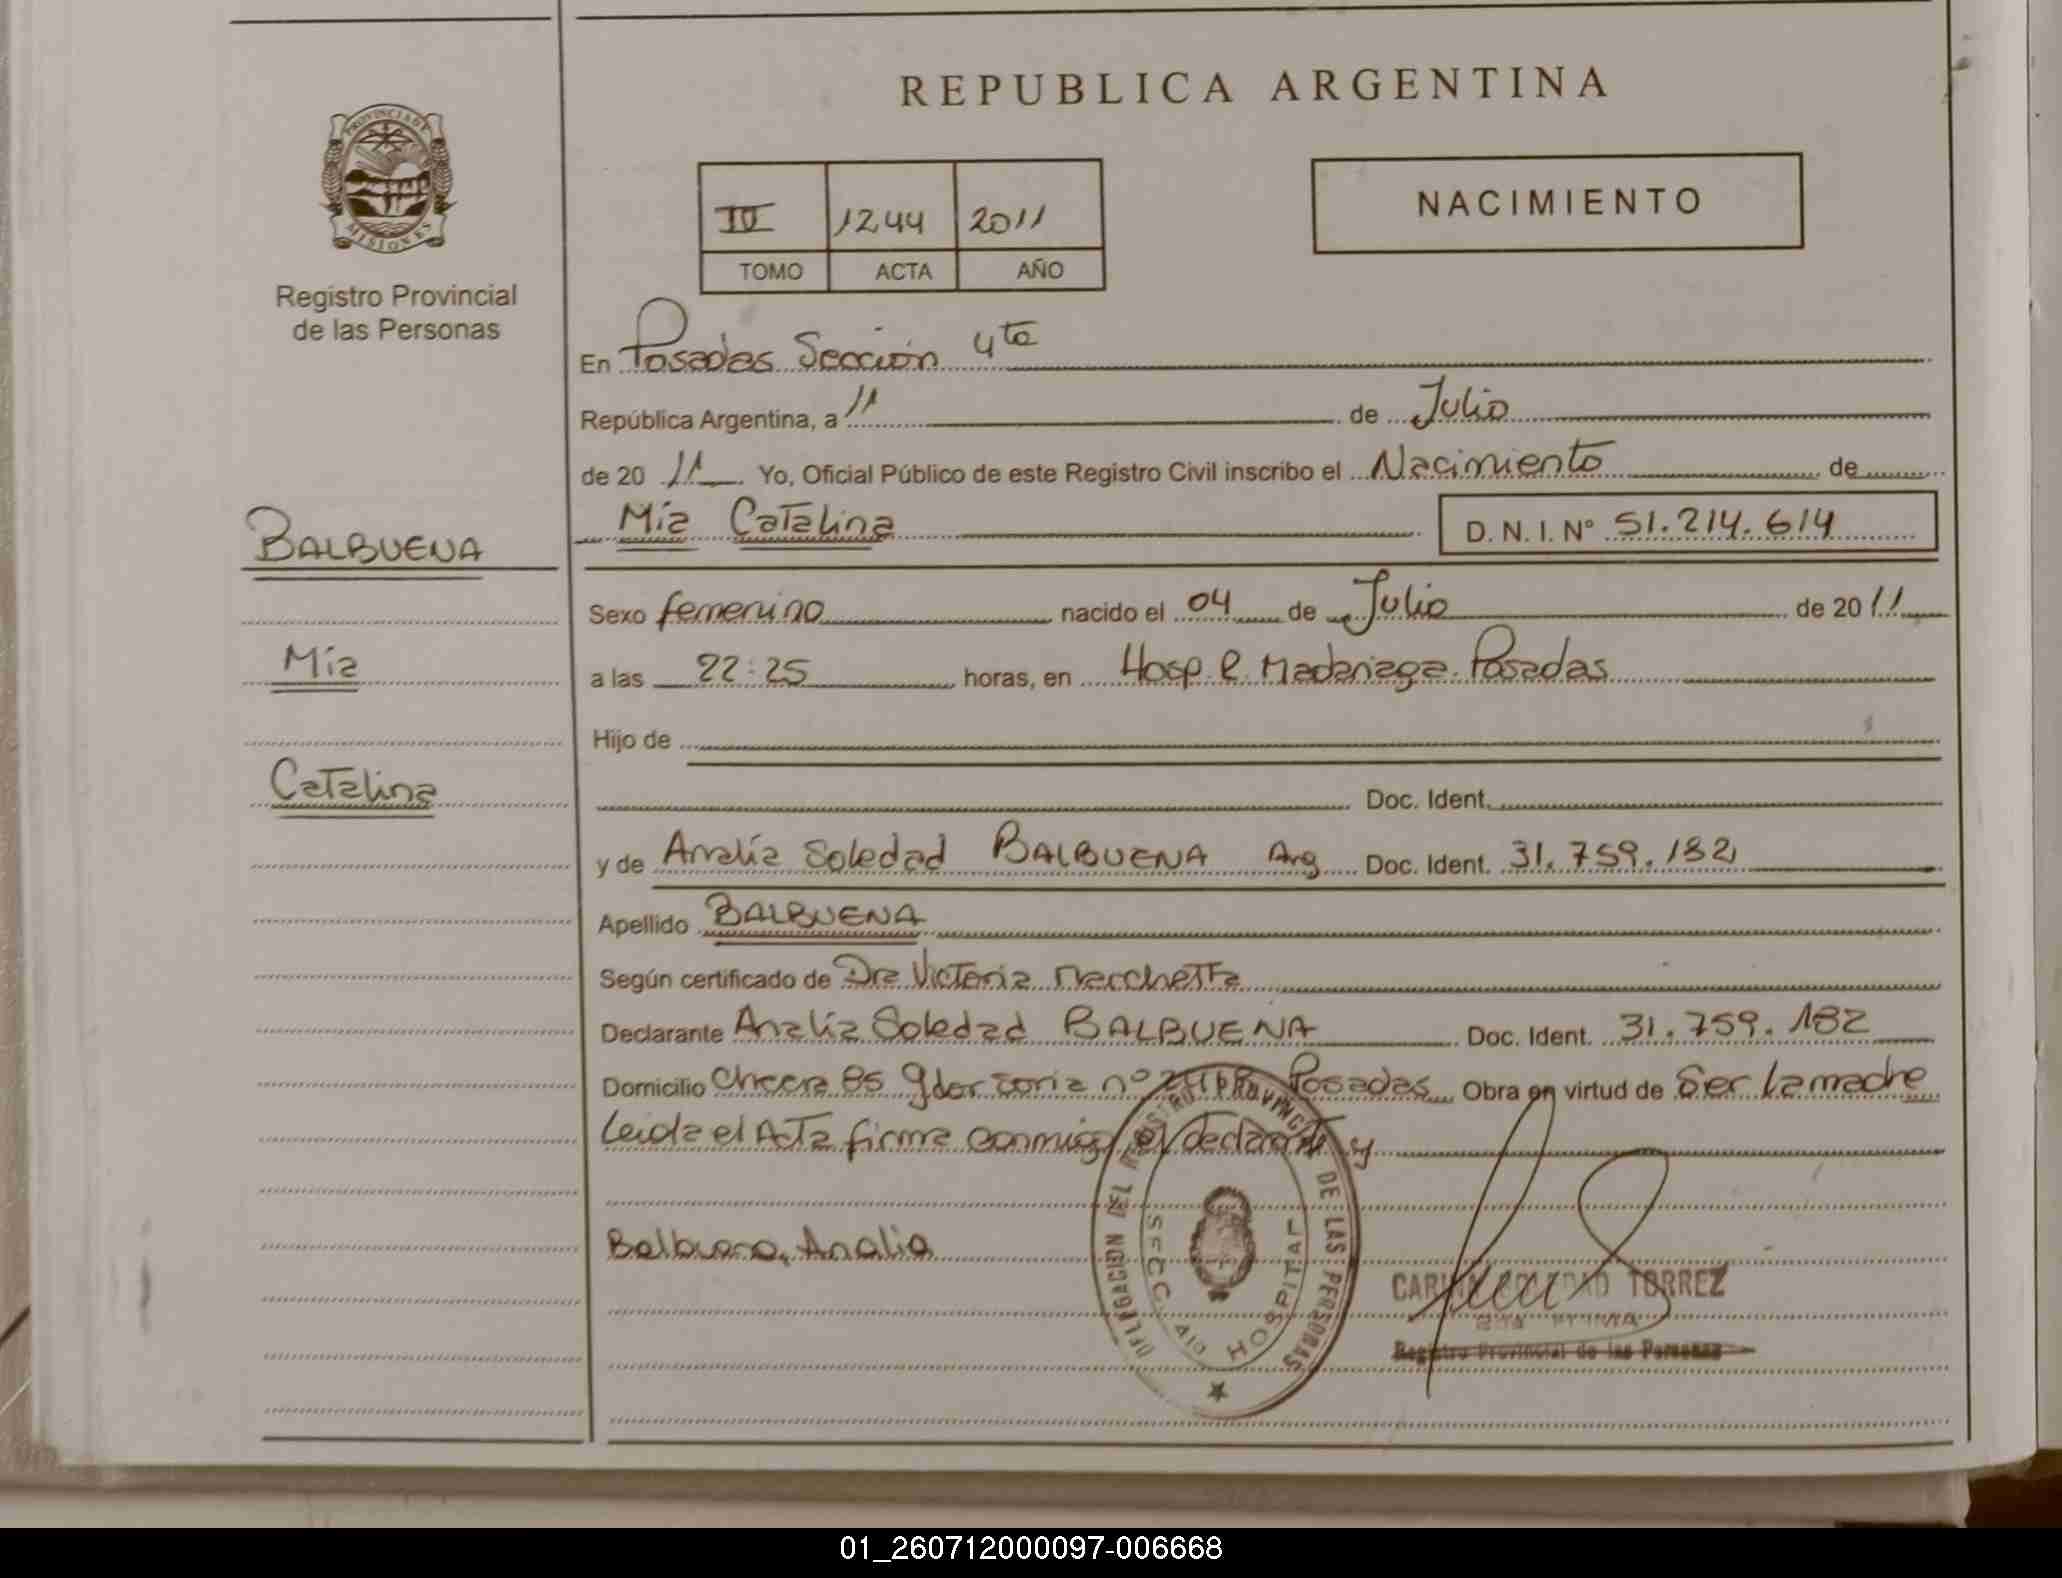 REPUBLICA ARGENTINA
PROVINCIA DE
MISIONES
Registro Provincial
de las Personas
IV 1244 2011
TOMO ACTA AÑO
NACIMIENTO
En Posadas Sección 4ta
República Argentina, a 11 de Julio
de 20 11 Yo, Oficial Público de este Registro Civil inscribo el Nacimiento de
Mía Catalina D. N. I. N° 51.214.614
BALBUENA
Mía
Catalina
Sexo femenino nacido el 04 de Julio de 20 11
a las 22:25 horas, en Hosp. R. Madariaga. Posadas
Hijo de
Doc. Ident.
y de Analía Soledad BALBUENA Arg Doc. Ident. 31.759.182
Apellido BALBUENA
Según certificado de Dra Victoria Macchetta
Declarante Analía Soledad BALBUENA Doc. Ident. 31.759.182
Domicilio Chacra 85 Gdor nº Posadas Obra en virtud de Ser la madre
Leida el Acta firma conmigo el declarante y
Balbuena, Analia
DELEGACION DEL REGISTRO PROVINCIAL DE LAS PERSONAS
SECC. 4ta HOSPITAL
TORREZ
Registro Provincial de las Personas
01_260712000097-006668